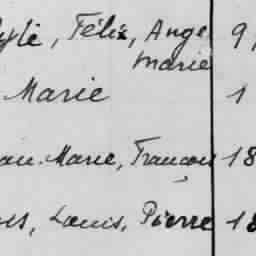 Félix, Ange 9
marie
Marie 1
Marie, François 18
Louis, Pierre 18